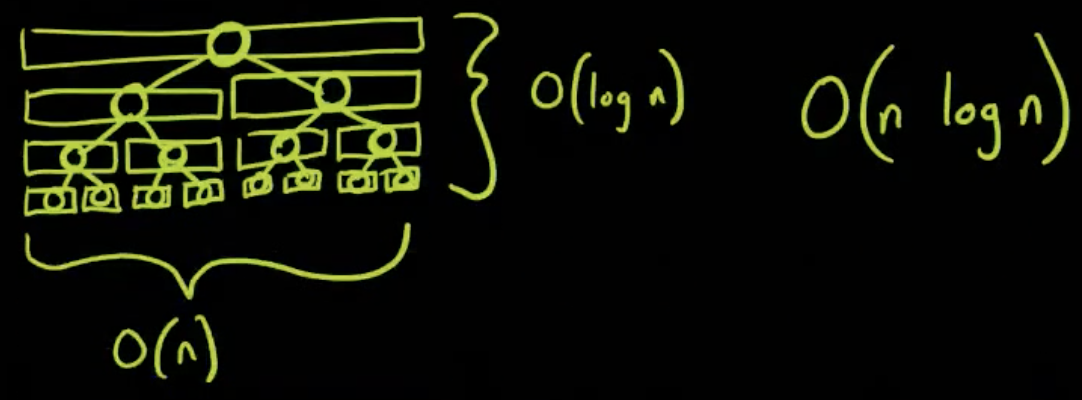 O(log n)
O(n log n)
O(n)